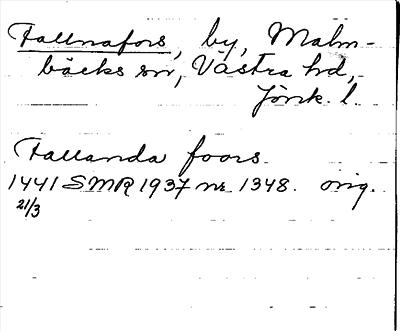 Fallnafors, by, Malm-
bäcks sn, Västra hd,
Jönk. l.
Fallanda foors
1441 SMR 1937 nr 1348. orig.
21/3